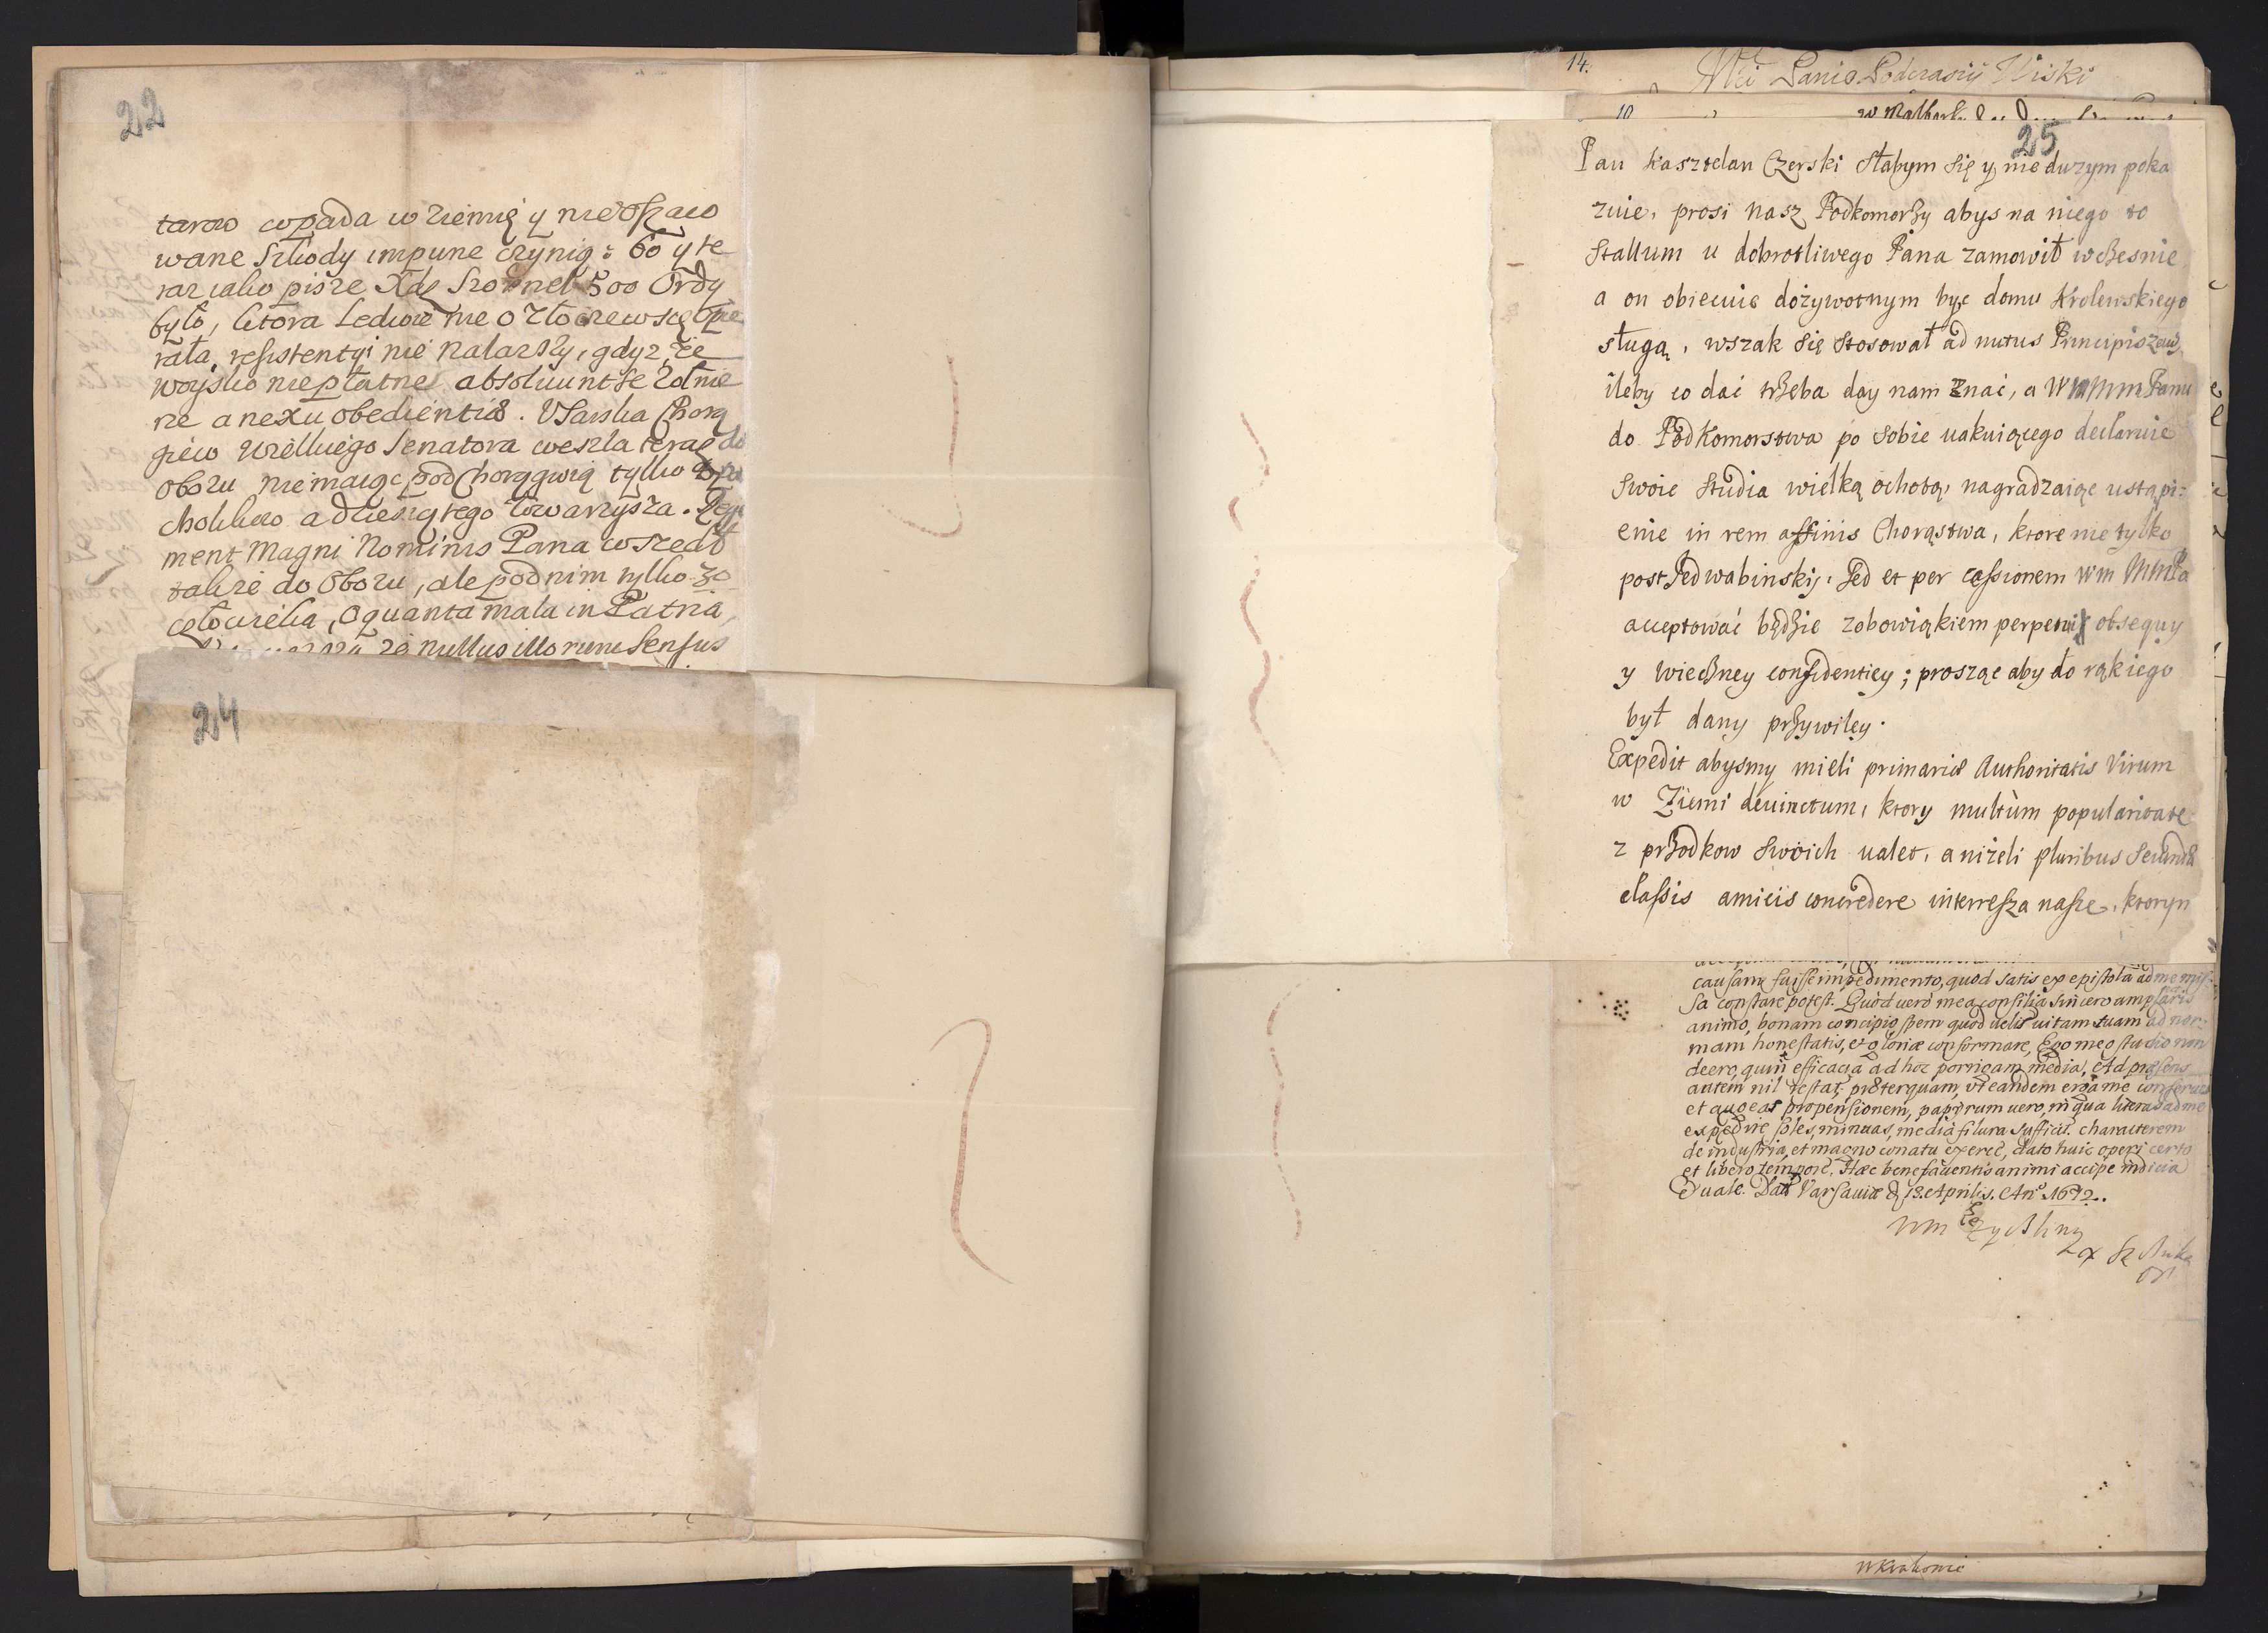 22
tarow wpada w ziemię y nieoszaco
wane szkody impune czynią: bo y te
raz iako pisze Xdz 500 Ordy
było, ktora ledwie nie o Złoczew się opie
rała, resistentyi nie nalazszy, gdyz, ze
woysko niepłatne absoluunt se Zołnie
rze a nexu obedientiæ. Usarska Chorą
giew wielkiego Senatora weszla teraz do
obozu niemaiąc pod Chorągwią tylko
cholkow a dziesiątego Towarzysza. Regi
ment Magni Nominis Pana wszedł
takze do obozu, ale pod nim tylko 30
człowieka, O quanta mala in Patria,
ze nullus illorum sensus
24
14.
Mci Panie Podczaszy Wiski
10
w Malbork
25
Pan Kasztelan Czerski słabym się y nie duzym poka
zuie, prosi nasz Podkomorzy abys na niego to
stallum u dobrotliwego Pana zamowił wczesnie
a on obiecuie dożywotnym byc domu Krolewskiego
sługą, wszak się stosował ad nutus Principis zaw
ileby co dać trzeba day nam znać, a WmMmPanu
do Podkomorstwa po sobie uakuiącego declaruie
swoie studia wielką ochotą, nagradzaiąc ustąpi:
enie in rem affinis Chorąstwa, ktore nie tylko
post Jedwabinskij, sed et per cessionem Wm MmPa
acceptować będzie zobowiąkiem perpetui obsequy
y wieczney confidentiey; prosząc aby do rąk iego
był dany przywiley.
Expedit abysmy mieli primariæ Authoritatis Virum
w Ziemi deuinctum, ktory multùm popularitate
z przodkow swoich ualet, anizeli pluribus secundæ
classis amicis concredere interresza nasze, ktorym
causam fuisse impedimento, quod satis ex epistola ad me mis:
sa constare potest. Quòd uerò mea consilia sincero amplecteris
animo, bonam concipio spem quod uelis uitam tuam ad nor:
mam honestatis, et gloriæ conformare, Ego meo studio non
deero, quin efficacia ad hoc porrigam media, Ad præsens
autem nil restat, præterquam, vt eandem erga me conserues
et augeas propensionem, papyrum uero, in qua literas ad me
expedire soles, minuas, media filura sufficit. characterem
de industria, et magno conatu exerce, dato huic operi certo
et libero tempore. Hæc benefauentis animi accipe indicia
et uale. Dat Varsauiæ d 13. Aprilis. An° 1672..
W Krakowie